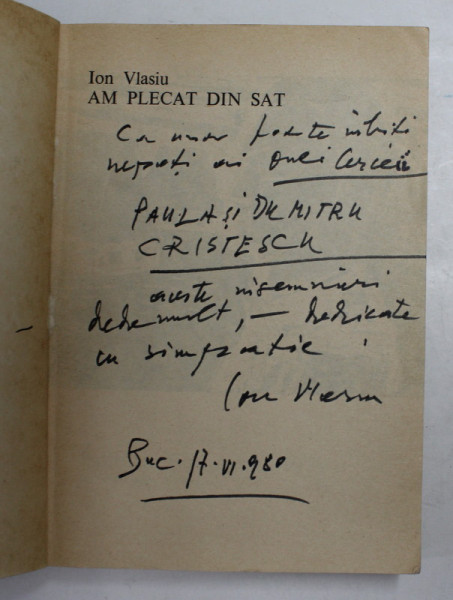 Ion Vlasiu
AM PLECAT DIN SAT
Ca unor foarte iubiți
nepoți ai
PAULA ȘI DUMITRU
CRISTESCU
aceste însemnări
de demult, — dedicate
cu simpatie
Ion Vlasiu
Buc. 17.VI.980